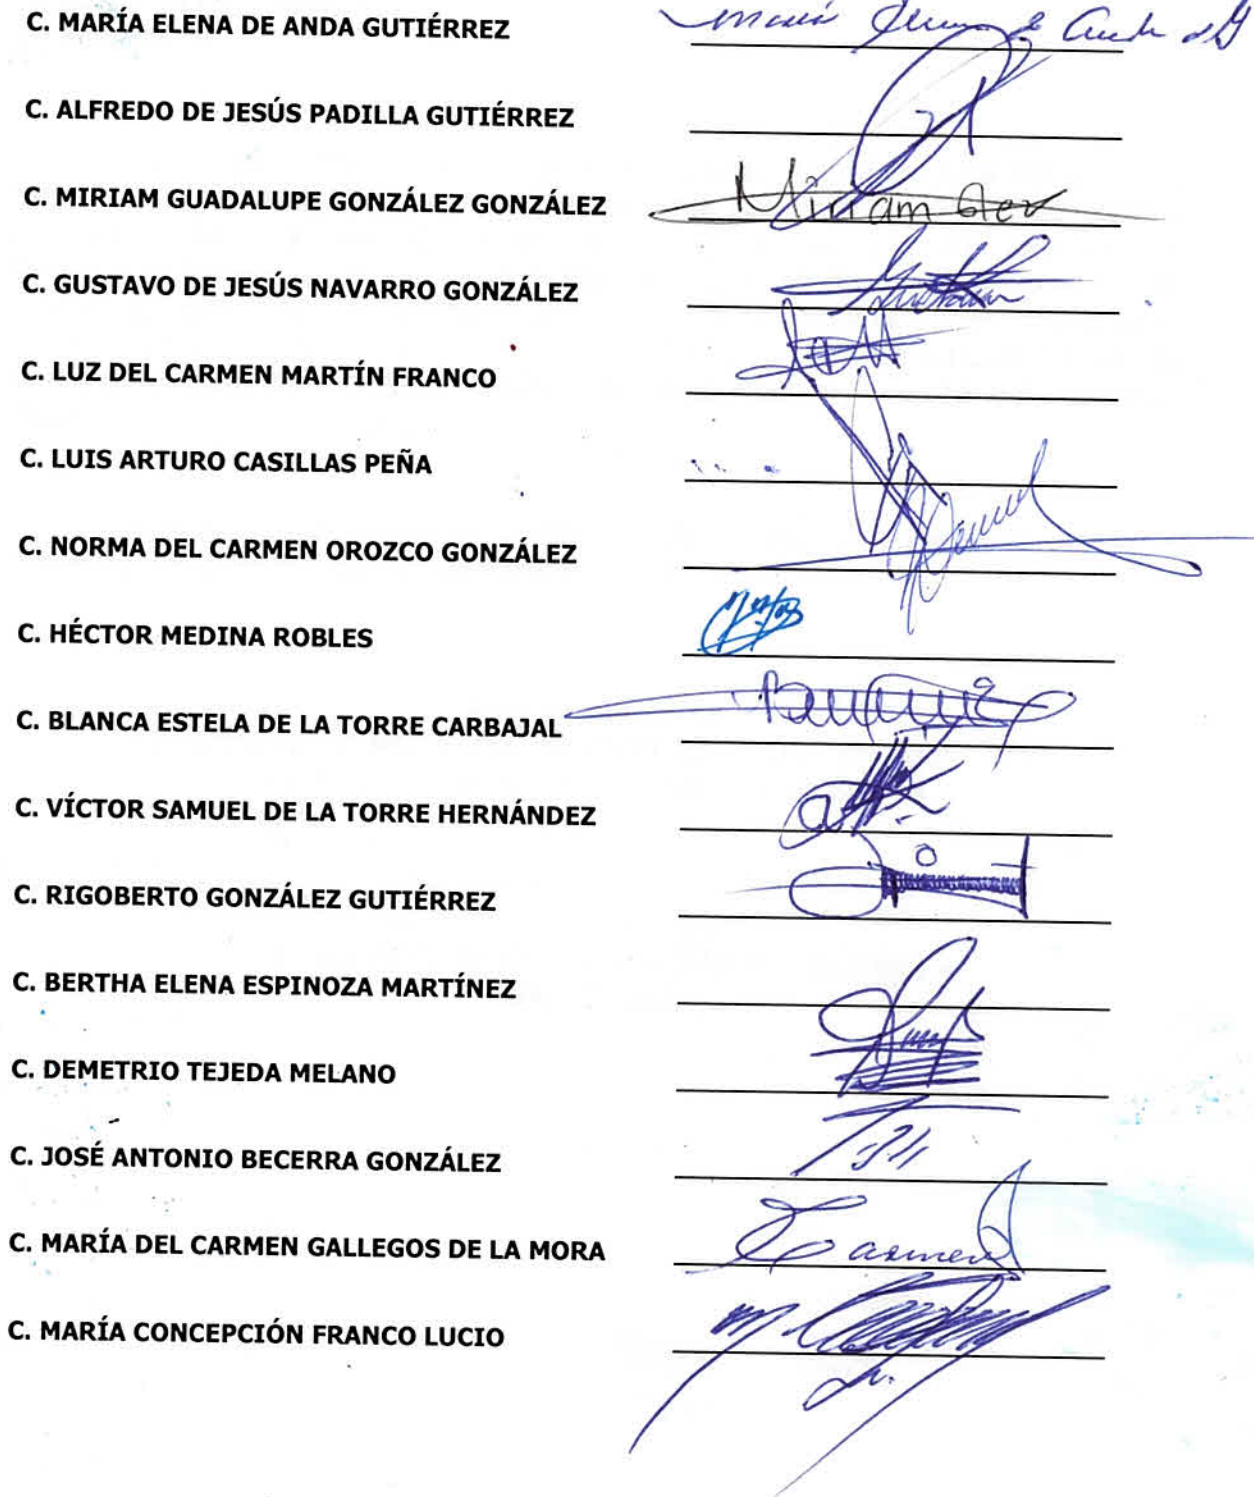 C. MARÍA ELENA DE ANDA GUTIÉRREZ María Elena de Anda de G
C. ALFREDO DE JESÚS PADILLA GUTIÉRREZ
C. MIRIAM GUADALUPE GONZÁLEZ GONZÁLEZ Miriam Glez
C. GUSTAVO DE JESÚS NAVARRO GONZÁLEZ Gustavo
C. LUZ DEL CARMEN MARTÍN FRANCO
C. LUIS ARTURO CASILLAS PEÑA
C. NORMA DEL CARMEN OROZCO GONZÁLEZ
C. HÉCTOR MEDINA ROBLES
C. BLANCA ESTELA DE LA TORRE CARBAJAL
C. VÍCTOR SAMUEL DE LA TORRE HERNÁNDEZ
C. RIGOBERTO GONZÁLEZ GUTIÉRREZ
C. BERTHA ELENA ESPINOZA MARTÍNEZ
C. DEMETRIO TEJEDA MELANO
C. JOSÉ ANTONIO BECERRA GONZÁLEZ
C. MARÍA DEL CARMEN GALLEGOS DE LA MORA Carmen
C. MARÍA CONCEPCIÓN FRANCO LUCIO